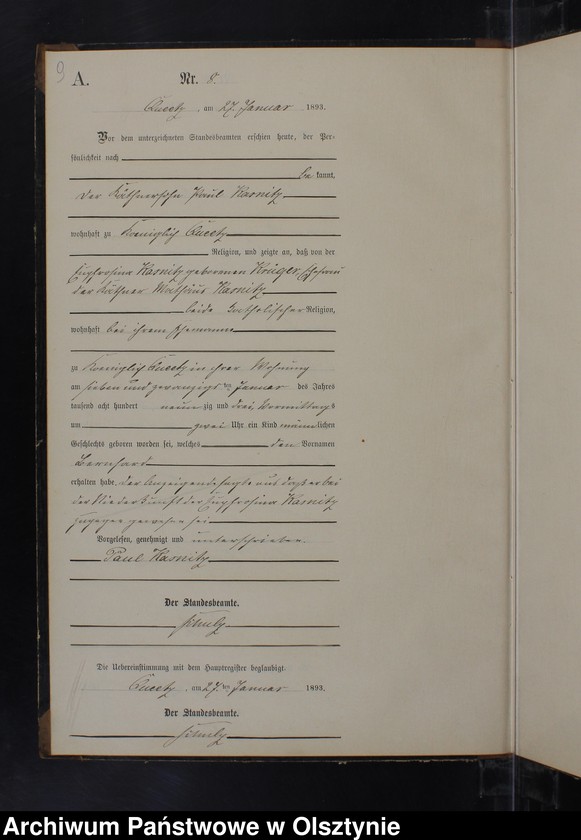 9
A. Nr. 8.
Queetz, am 27. Januar 1893.
Vor dem unterzeichneten Standesbeamten erschien heute, der Per-
sönlichkeit nach
be kannt,
der Käthnersohn Paul Hasnitz
wohnhaft zu Koeniglich Queetz
Religion, und zeigte an, daß von der
Euphrosina Hasnitz geborenen Krüger, Ehefrau
des Käthner Mathäus Hasnitz
beide katholischer Religion,
wohnhaft bei ihrem Ehemanne
zu Koeniglich Queetz in ihrer Wohnung
am sieben und zwanzigsten Januar des Jahres
tausend acht hundert neun zig und drei, Vormittags
um zwei Uhr ein Kind männlichen
Geschlechts geboren worden sei, welches den Vornamen
Bernhard
erhalten habe. Der Anzeigende sagte aus daß er bei
der Niederkunft der Euphrosina Hasnitz
zugegen gewesen sei
Vorgelesen, genehmigt und unterschrieben.
Paul Hasnitz
Der Standesbeamte.
Schulz
Die Uebereinstimmung mit dem Hauptregister beglaubigt.
Queetz, am 27. ten Januar 1893.
Der Standesbeamte.
Schulz
Archiwum Państwowe w Olsztynie